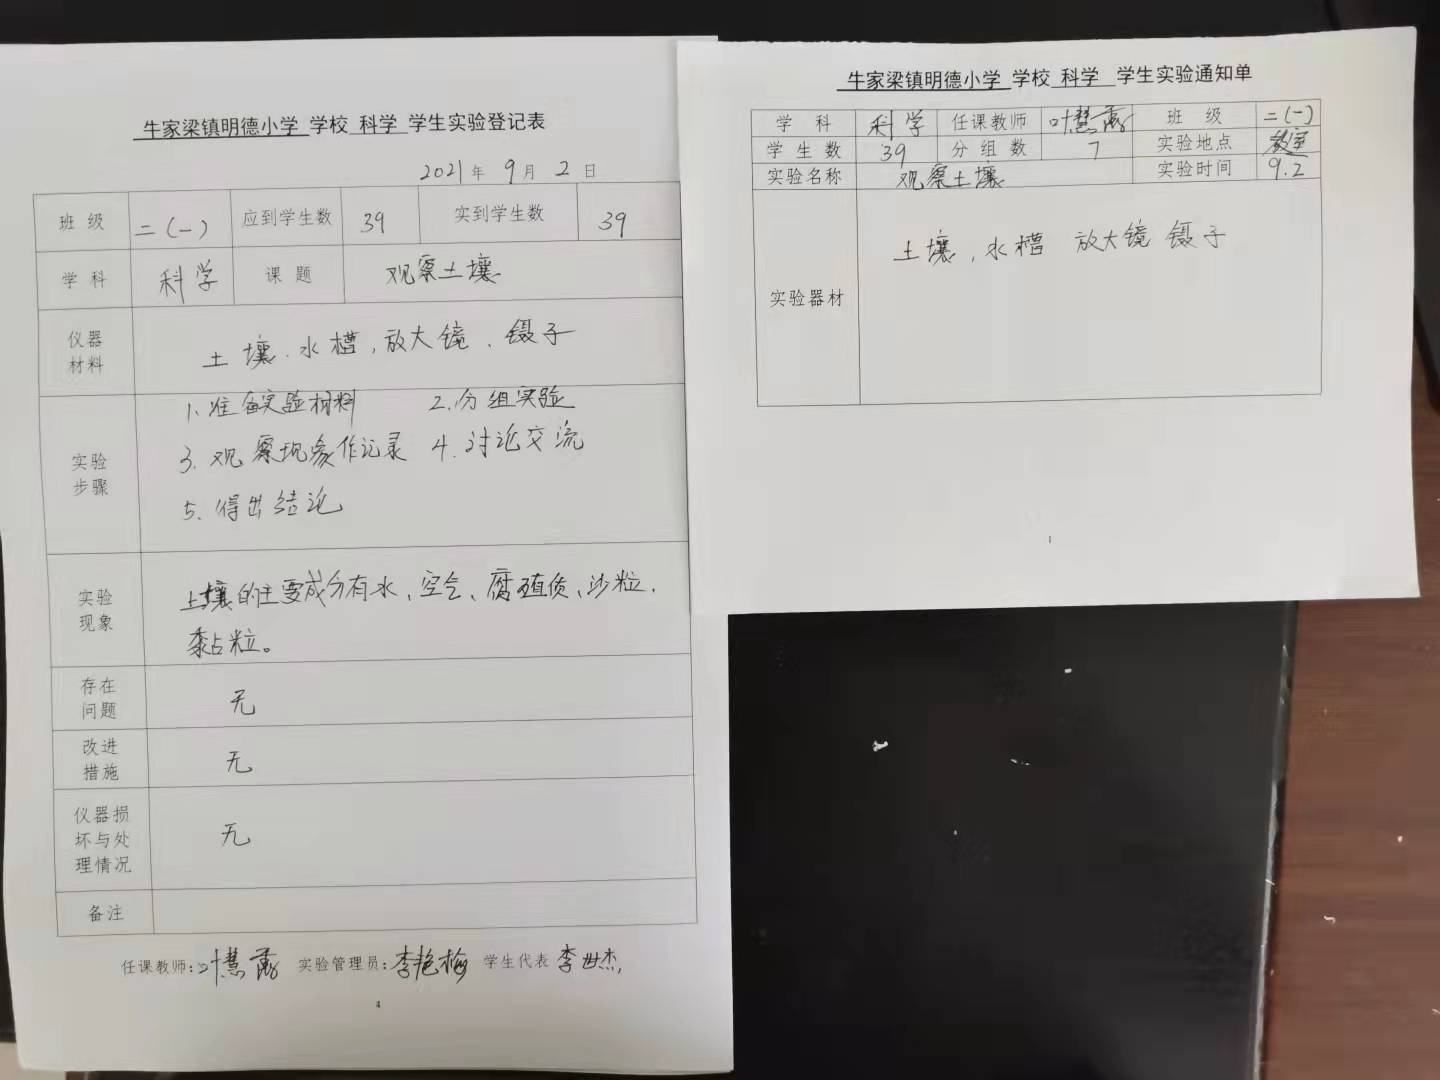 牛家梁镇明德小学 学校 科学 学生实验登记表
2021 年 9 月 2 日
班 级 二(一) 应到学生数 39 实到学生数 39
学 科 科学 课 题 观察土壤
仪器材料 土壤、水槽,放大镜、镊子
实验步骤 1、准备实验材料 2.分组实验
3、观察现象作记录 4.讨论交流
5、得出结论
实验现象 土壤的主要成分有水、空气、腐殖质、沙粒、
黏粒。
存在问题 无
改进措施 无
仪器损坏与处理情况 无
备注
任课教师:叶慧 实验管理员:李艳梅 学生代表 李世杰
4
牛家梁镇明德小学 学校 科学 学生实验通知单
学 科 科学 任课教师 叶慧 班 级 二(一)
学 生 数 39 分 组 数 7 实验地点 教室
实验名称 观察土壤 实验时间 9.2
实验器材 土壤、水槽 放大镜 镊子
1